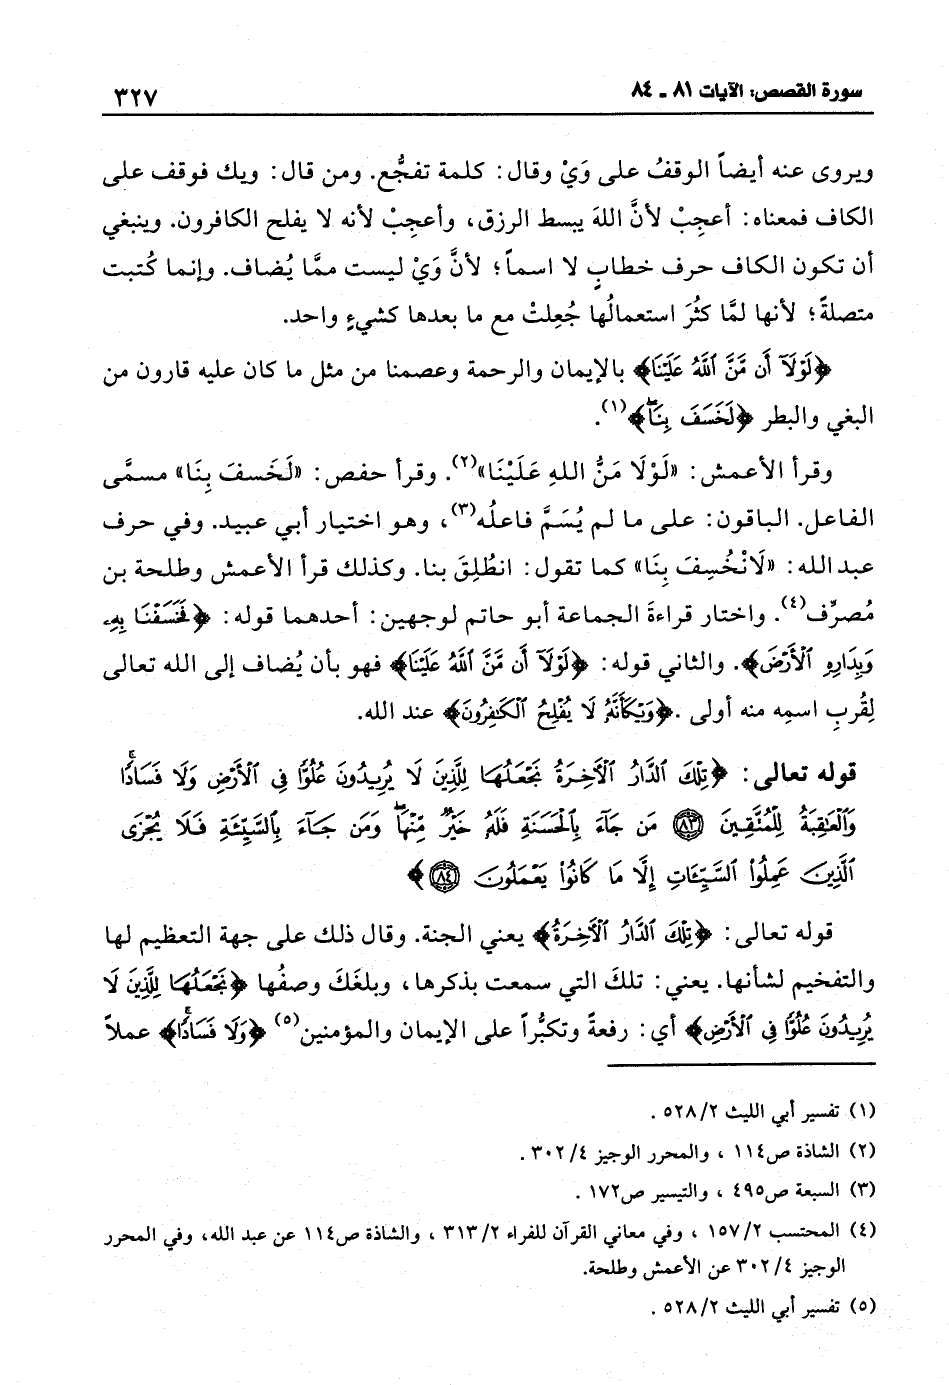 سورة القصص: الآيات ٨١ ـ ٨٤
٣٢٧
ويروى عنه أيضاً الوقفُ على وَيْ وقال: كلمة تفجُّع. ومن قال: ويك فوقف على
الكاف فمعناه: أعجِبْ لأنَّ اللهَ يبسط الرزق، وأعجِبْ لأنه لا يفلح الكافرون. وينبغي
أن تكون الكاف حرف خطابٍ لا اسماً؛ لأنَّ وَيْ ليست ممَّا يُضاف. وإنما كُتبت
متصلةً؛ لأنها لمَّا كثُرَ استعمالُها جُعِلتْ مع ما بعدها كشيءٍ واحد.
﴿لَوْلَآ أَن مَّنَّ ٱللَّهُ عَلَيْنَا﴾ بالإيمان والرحمة وعصمنا من مثل ما كان عليه قارون من
البغي والبطر ﴿لَخَسَفَ بِنَاۖ﴾(١).
وقرأ الأعمش: «لَوْلَا مَنُّ اللهِ عَلَيْنَا»(٢). وقرأ حفص: «لَخَسفَ بِنَا» مسمَّى
الفاعل. الباقون: على ما لم يُسَمَّ فاعلُه(٣)، وهو اختيار أبي عبيد. وفي حرف
عبد الله: «لَانْخُسِفَ بِنَا» كما تقول: انطُلِقَ بنا. وكذلك قرأ الأعمش وطلحة بن
مُصرِّف(٤). واختار قراءةَ الجماعة أبو حاتم لوجهين: أحدهما قوله: ﴿فَخَسَفْنَا بِهِۦ
وَبِدَارِهِ ٱلْأَرْضَ﴾. والثاني قوله: ﴿لَوْلَآ أَن مَّنَّ ٱللَّهُ عَلَيْنَا﴾ فهو بأن يُضاف إلى الله تعالى
لِقُربِ اسمِه منه أولى .﴿وَيْكَأَنَّهُۥ لَا يُفْلِحُ ٱلْكَٰفِرُونَ﴾ عند الله.
قوله تعالى: ﴿تِلْكَ ٱلدَّارُ ٱلْأَخِرَةُ نَجْعَلُهَا لِلَّذِينَ لَا يُرِيدُونَ عُلُوًّا فِى ٱلْأَرْضِ وَلَا فَسَادًاۚ
وَٱلْعَٰقِبَةُ لِلْمُتَّقِينَ ٨٣ مَن جَآءَ بِٱلْحَسَنَةِ فَلَهُۥ خَيْرٌ مِّنْهَاۖ وَمَن جَآءَ بِٱلسَّيِّئَةِ فَلَا يُجْزَى
ٱلَّذِينَ عَمِلُوا۟ ٱلسَّيِّـَٔاتِ إِلَّا مَا كَانُوا۟ يَعْمَلُونَ ٨٤﴾
قوله تعالى: ﴿تِلْكَ ٱلدَّارُ ٱلْأَخِرَةُ﴾ يعني الجنة. وقال ذلك على جهة التعظيم لها
والتفخيم لشأنها. يعني: تلكَ التي سمعت بذكرها، وبلغَكَ وصفُها ﴿نَجْعَلُهَا لِلَّذِينَ لَا
يُرِيدُونَ عُلُوًّا فِى ٱلْأَرْضِ﴾ أي: رفعةً وتكبُّراً على الإيمان والمؤمنين(٥) ﴿وَلَا فَسَادًاۚ﴾ عملاً
(١) تفسير أبي الليث ٥٢٨/٢ .
(٢) الشاذة ص١١٤ ، والمحرر الوجيز ٣٠٢/٤ .
(٣) السبعة ص٤٩٥ ، والتيسير ص١٧٢ .
(٤) المحتسب ١٥٧/٢ ، وفي معاني القرآن للفراء ٣١٣/٢ ، والشاذة ص١١٤ عن عبد الله، وفي المحرر
الوجيز ٣٠٢/٤ عن الأعمش وطلحة.
(٥) تفسير أبي الليث ٥٢٨/٢ .